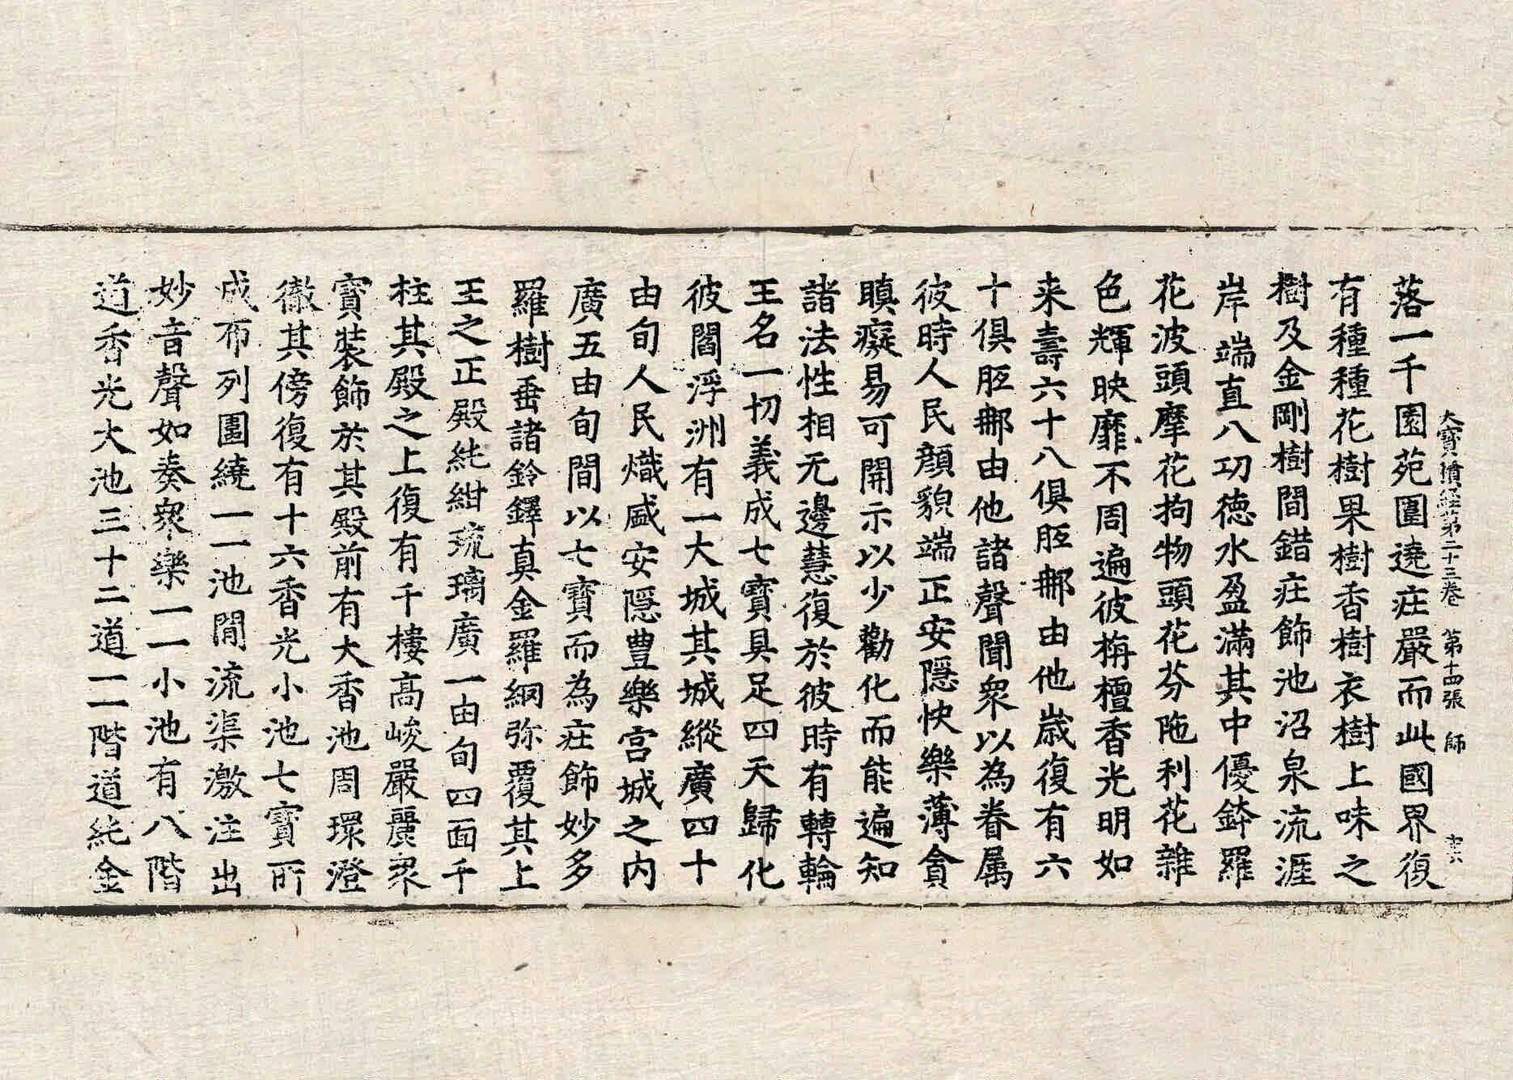 大寶積經第二十三卷 第十四張 師
落一千園苑圍遶庄嚴而此國界復
有種種花樹果樹香樹衣樹上味之
樹及金剛樹間錯庄飾池沼泉流涯
岸端直八功德水盈滿其中優鉢羅
花波頭摩花拘物頭花芬陁利花雜
色輝映靡不周遍彼栴檀香光明如
来壽六十八俱胝郍由他歳復有六
十俱胝郍由他諸聲聞衆以為眷属
彼時人民顔貌端正安隠快樂薄貪
瞋癡易可開示以少勸化而能遍知
諸法性相无邊慧復於彼時有轉輪
王名一切義成七寶具足四天歸化
彼閻浮洲有一大城其城縱廣四十
由旬人民熾盛安隠豊樂宮城之内
廣五由旬間以七寶而為庄飾妙多
羅樹垂諸鈴鐸真金羅網弥覆其上
王之正殿純紺琉璃廣一由旬四面千
柱其殿之上復有千樓高峻嚴麗衆
寳裝飾於其殿前有大香池周環澄
徹其傍復有十六香光小池七寶所
成布列圍繞一一池閒流渠激注出
妙音聲如奏衆樂一一小池有八階
道香光大池三十二道一一階道純金